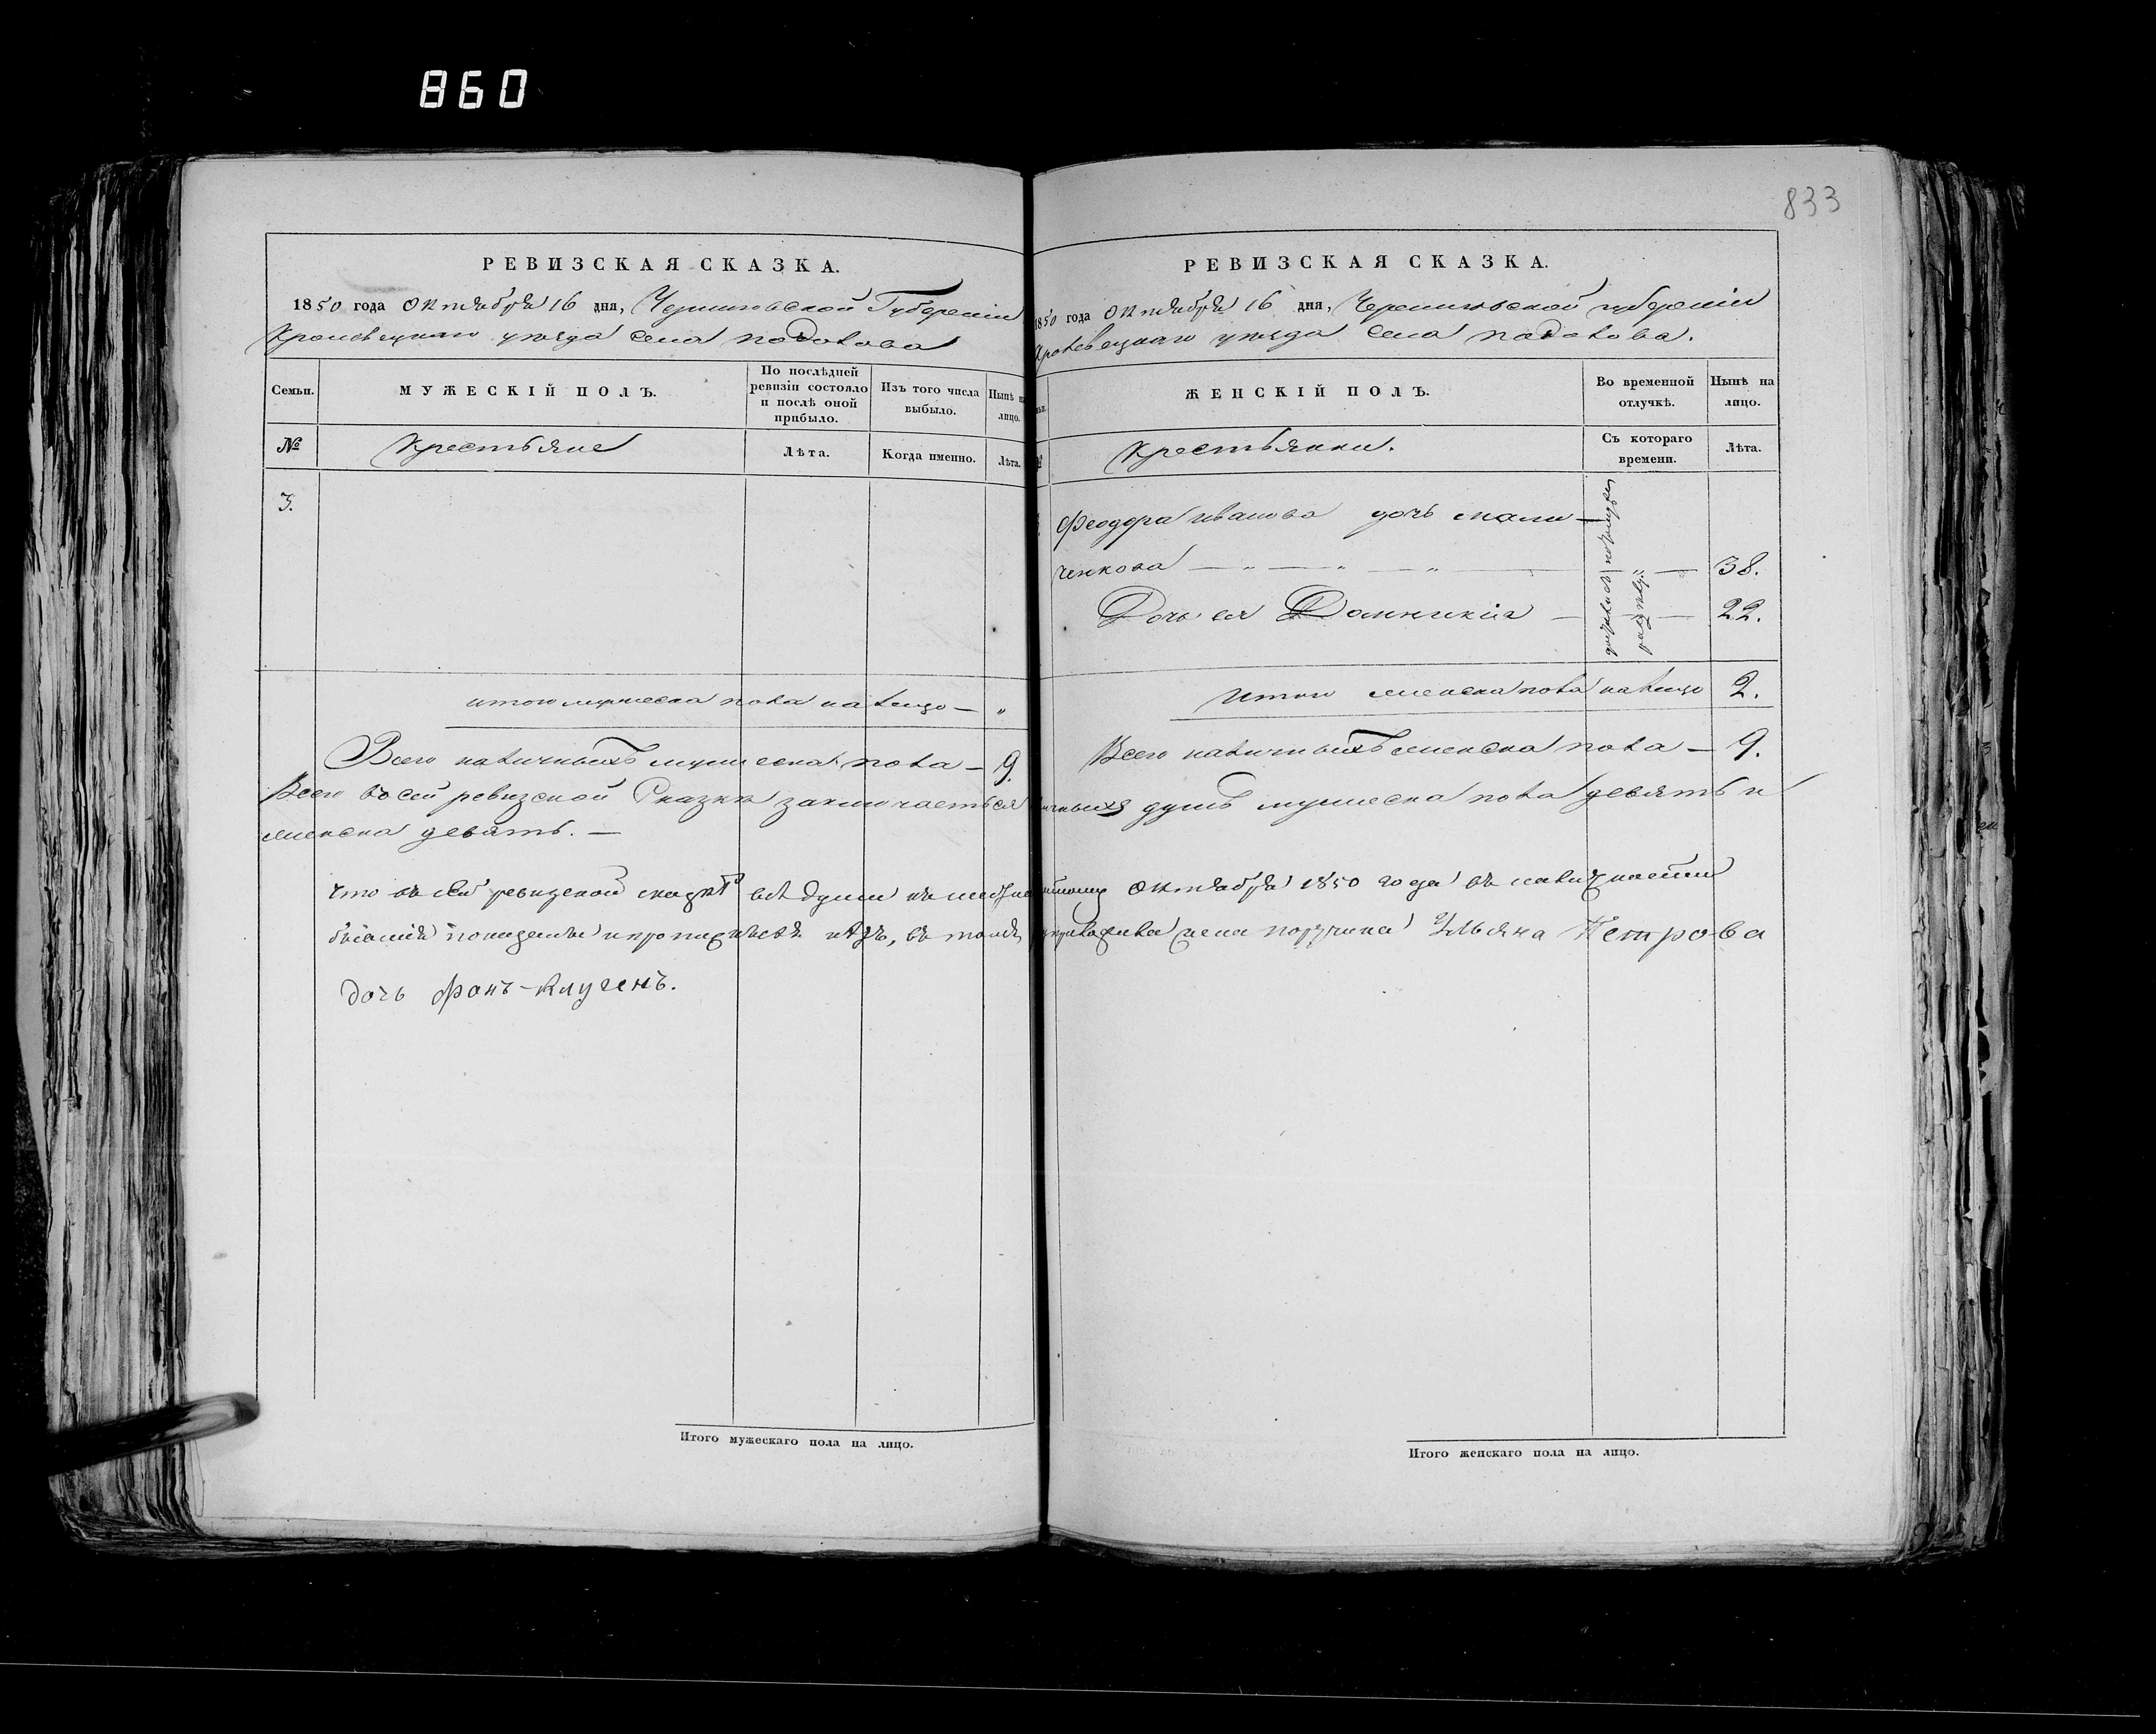 860
833
РЕВИЗСКАЯ СКАЗКА.
1850 года Октября 16 дня, Черниговской Губерніи
Кролевецкаго уезда села Подолова
Семьи.
МУЖЕСКІЙ ПОЛЪ.
По послѣдней ревизіи состояло и послѣ оной прибыло.
Изъ того числа выбыло.
Нынѣ на лицо.
№
Крестьяне
Лѣта.
Когда именно.
Лѣта.
3.
итого мужеска пола на лицо — „
Всего наличныхъ мужеска пола — 9.
РЕВИЗСКАЯ СКАЗКА.
1850 года Октября 16 дня, Черниговской губерніи
Кролевецкаго уезда села Подолова.
ЖЕНСКІЙ ПОЛЪ.
Во временной отлучкѣ.
Нынѣ на лицо.
Крестьянки.
Съ котораго времени.
Лѣта.
Феодора Иванова дочь Мали-
ченкова — „ — „ — „ — „ — 38.
Дочь ея Домникія — — 22.
Итого женска пола на лицо 2.
Всего наличныхъ женска пола — 9.
Всего въ сей ревизской Сказкѣ заключается наличныхъ душъ мужеска пола девять и
женска девять. —
Что въ сей ревизской сказкѣ всѣ души къ Октября 1850 года въ наличности
бывшія показаны и прописныхъ нѣтъ, въ томъ жена поручика Ульяна Петрова
дочь Фонъ-Клугенъ.
Итого мужескаго пола на лицо.
Итого женскаго пола на лицо.